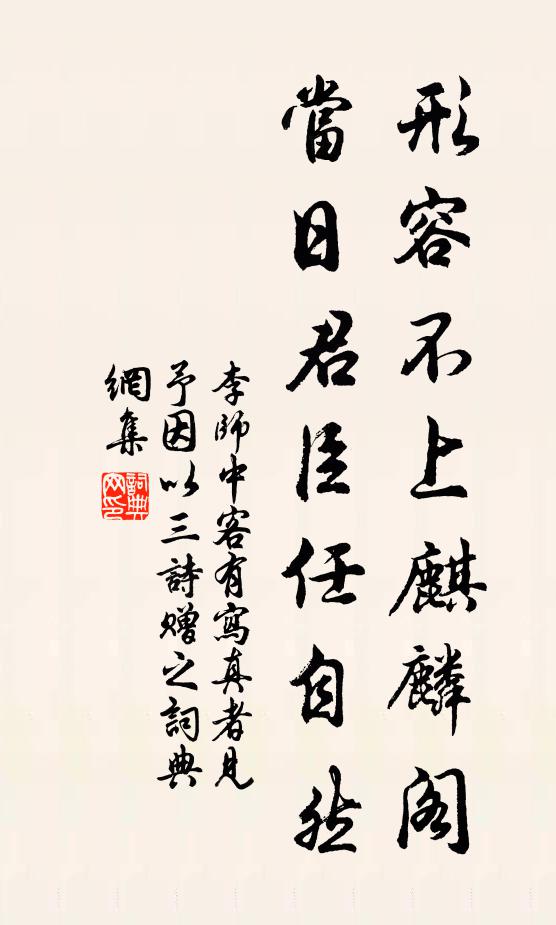 形容不上麒麟阁
當日君臣任自然
李師中客有寫真者見
予因以三詩贈之詞典
網集
詞典
网印